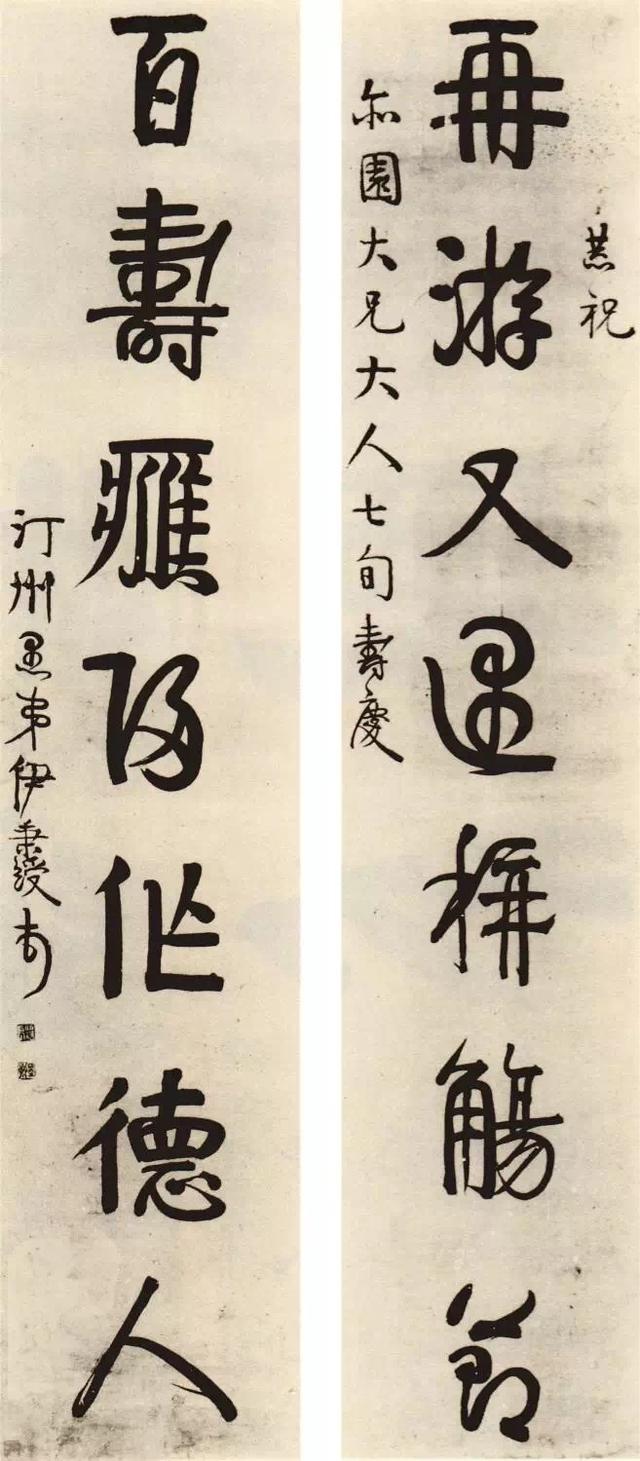 恭祝
再游又遇稱觴節
亦園大兄大人七旬壽慶
百壽應歸作德人
汀州愚弟伊秉綬書